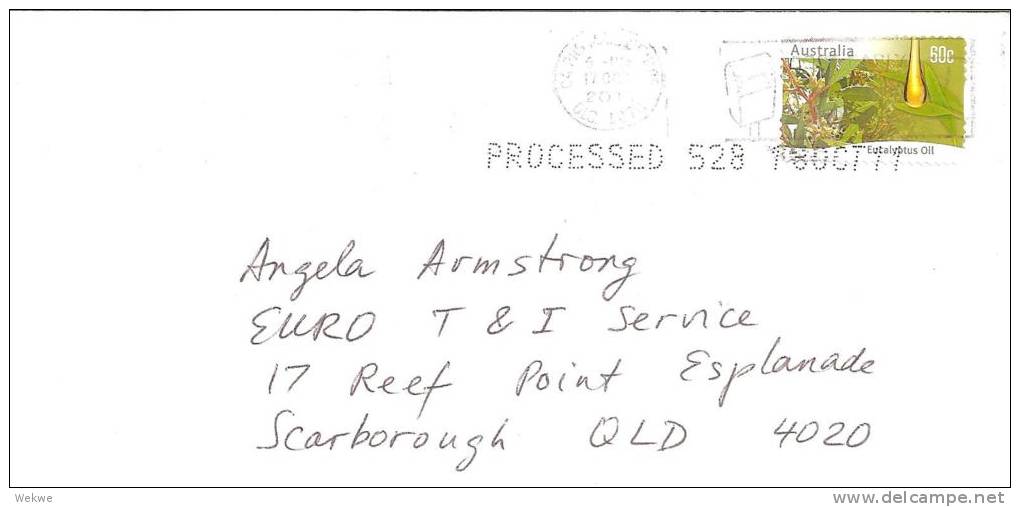 Australia 60c
Eucalyptus Oil
PROCESSED 528
Angela Armstrong
EURO T & I Service
17 Reef Point Esplanade
Scarborough QLD 4020
Wekwe
www.delcampe.net